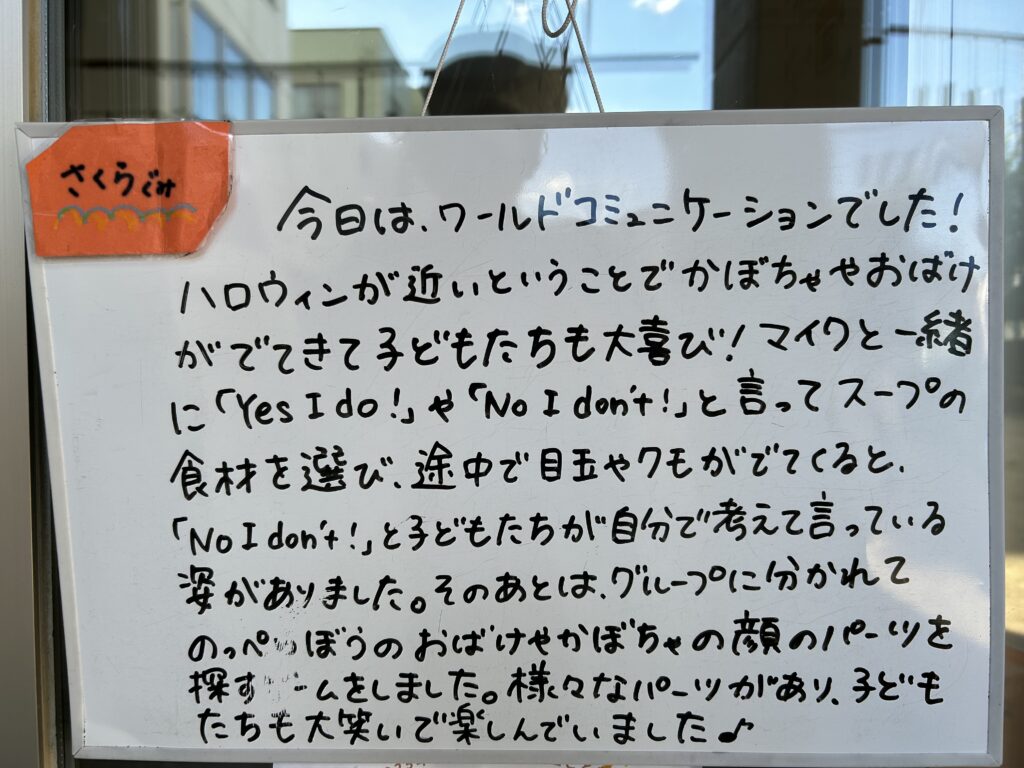 さくらぐみ
今日は、ワールドコミュニケーションでした!
ハロウィンが近いということでかぼちゃやおばけ
がでてきて子どもたちも大喜び!マイクと一緒
に「Yes I do!」や「No I don't!」と言ってスープの
食材を選び、途中で目玉やクモがでてくると、
「No I don't!」と子どもたちが自分で考えて言っている
姿がありました。そのあとは、グループに分かれて
のっぺ ぼうのおばけやかぼちゃの顔のパーツを
探す ームをしました。様々なパーツがあり、子ども
たちも大笑いで楽しんでいました♪